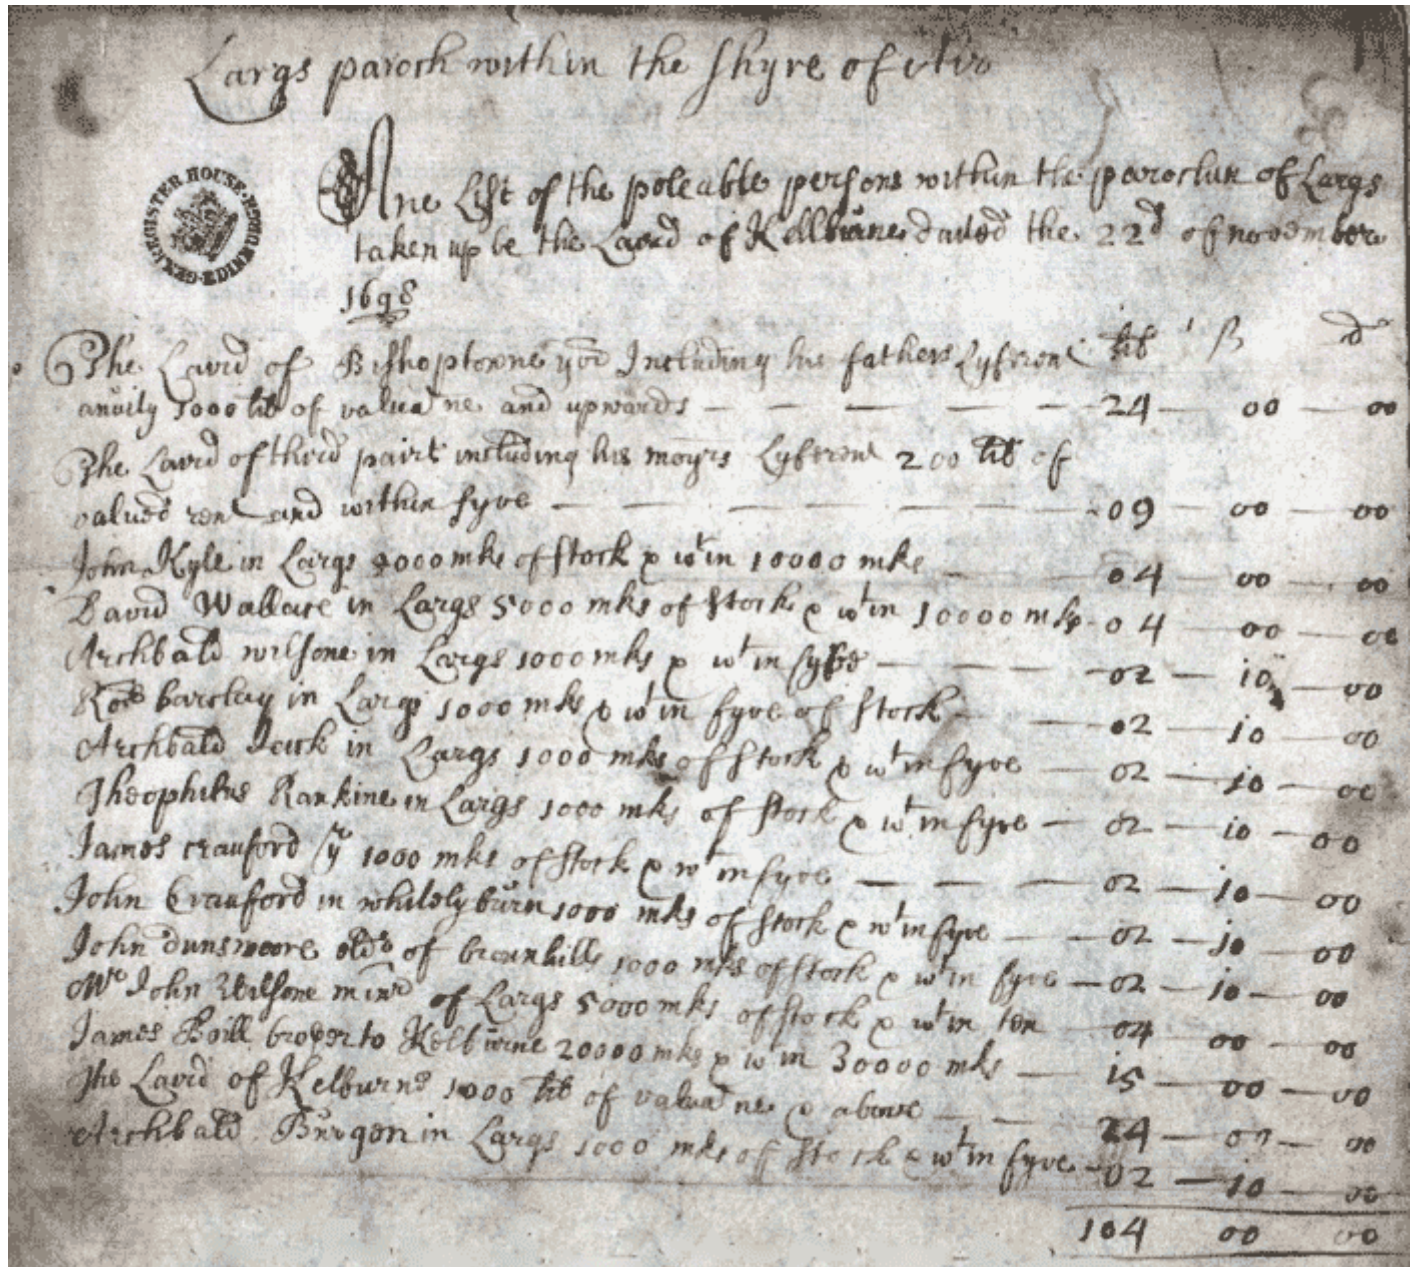 Largs paroch within the shyre of Air
Ane List of the poleable persons within the parochin of Largs
taken up be the Laird of Kelburne dated the 22d of november
1698
GEN. REGISTER HOUSE. EDINBURGH
lib ß d
The Laird of Bishoptoune yor Including his fathers Lyfrent
anuity 1000 lib of valuane and upwards 24 00 00
The Laird of third pairt including his moyrs Lyfrent 200 lib of
valued rent and within fyve 09 00 00
John Kyle in Largs 000 mks of stock & wtin 10000 mks 04 00 00
David Wallace in Largs 5000 mks of stock & wtin 10000 mks 04 00 00
Archbald wilsone in Largs 1000 mks & wtin fyve 02 10 00
Rot barclay in Largs 1000 mks & wtin fyve of stock 02 10 00
Archbald Jack in Largs 1000 mks of stock & wtin fyve 02 10 00
Theophilus Rankine in Largs 1000 mks of stock & wtin fyve 02 10 00
James crauford yr 1000 mks of stock & wtin fyve 02 10 00
John Crauford in whitelyburn 1000 mks of stock & wtin fyve 02 10 00
John dunsmoore oldr of brounhills 1000 mks of stock & wtin fyve 02 10 00
Mr John Wilsone minr of Largs 5000 mks of stock & wtin ten 04 00 00
James Boill broyer to Kelburne 20000 mks & wtin 30000 mks 15 00 00
The Laird of Kelburne 1000 lib of valuane & above 24 00 00
Archbald Burgon in Largs 1000 mks of stock & wtin fyve 02 10 00
104 00 00